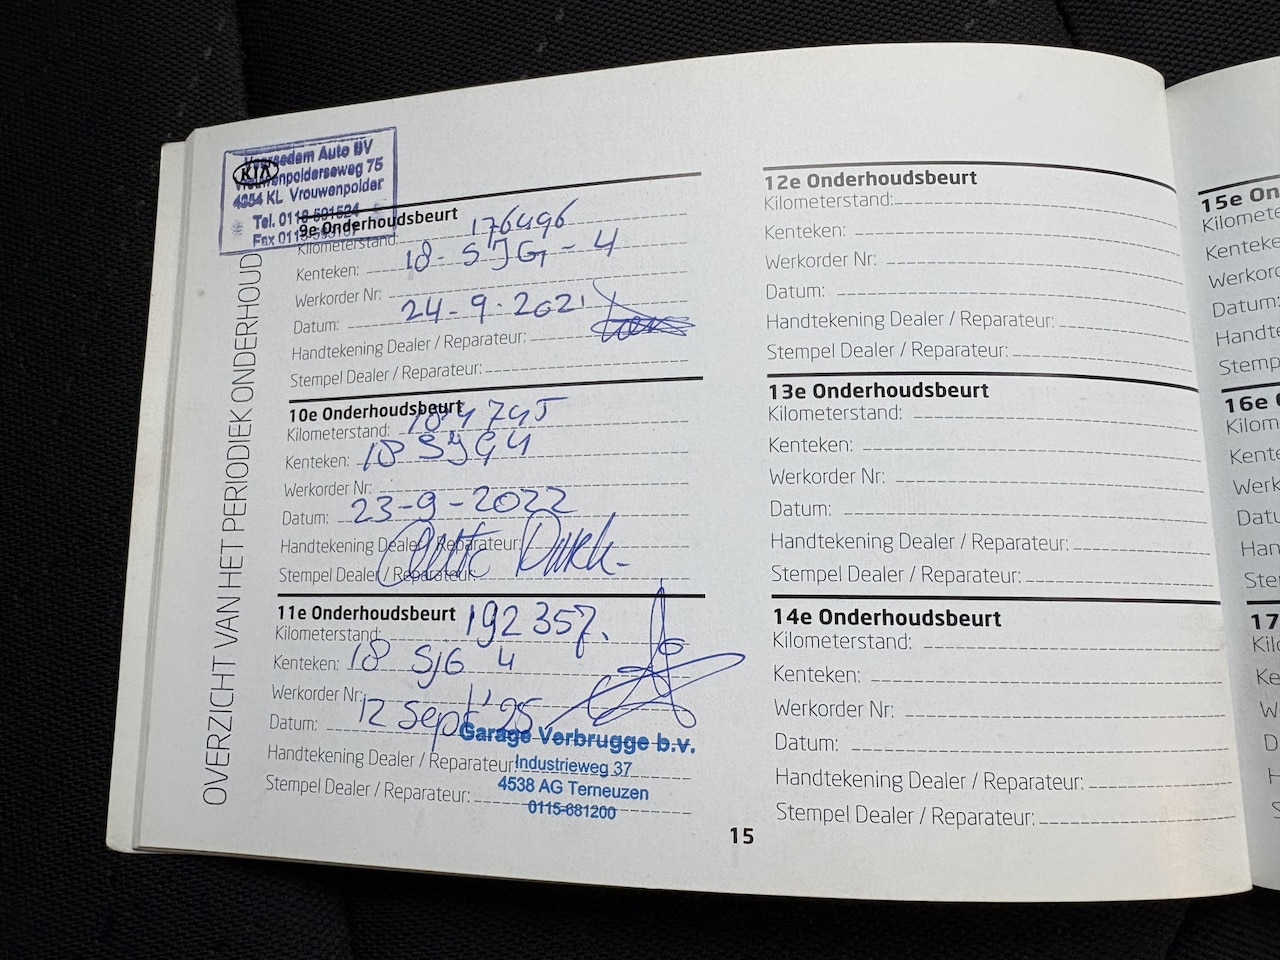 OVERZICHT VAN HET PERIODIEK ONDERHOUD
KIA
Auto BV
75
4354 KL Vrouwenpolder
Tel. 0118-591524
Fax
9e Onderhoudsbeurt
Kilometerstand: 176496
Kenteken: 18-SJG-4
Werkorder Nr:
Datum: 24-9-2021
Handtekening Dealer / Reparateur:
Stempel Dealer / Reparateur:
10e Onderhoudsbeurt
Kilometerstand: 184745
Kenteken: 18 SJG4
Werkorder Nr:
Datum: 23-9-2022
Handtekening Dealer / Reparateur:
Stempel Dealer / Reparateur:
11e Onderhoudsbeurt
Kilometerstand: 192357.
Kenteken: 18 SJG 4
Werkorder Nr:
Datum: 12 Sept '25
Handtekening Dealer / Reparateur:
Stempel Dealer / Reparateur:
Garage Verbrugge b.v.
Industrieweg 37
4538 AG Terneuzen
0115-681200
15
12e Onderhoudsbeurt
Kilometerstand:
Kenteken:
Werkorder Nr:
Datum:
Handtekening Dealer / Reparateur:
Stempel Dealer / Reparateur:
13e Onderhoudsbeurt
Kilometerstand:
Kenteken:
Werkorder Nr:
Datum:
Handtekening Dealer / Reparateur:
Stempel Dealer / Reparateur:
14e Onderhoudsbeurt
Kilometerstand:
Kenteken:
Werkorder Nr:
Datum:
Handtekening Dealer / Reparateur:
Stempel Dealer / Reparateur:
15e On
Kilomete
Kenteke
Werkord
Datum:
Handte
Stemp
16e
Kilom
Kente
Werk
Datu
Han
Ste
17
Kil
Ke
W
D
H
S